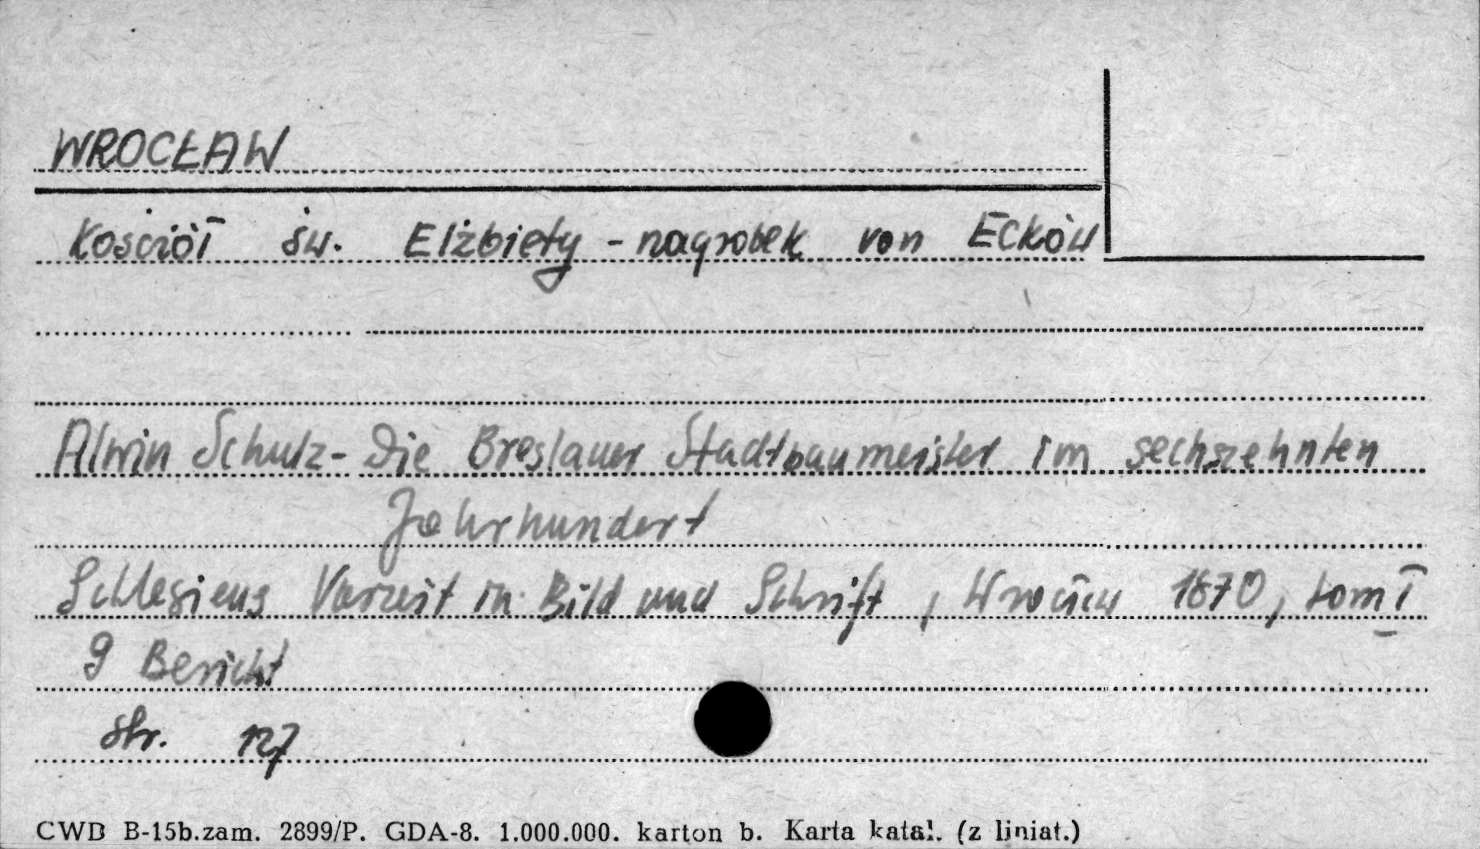 WROCŁAW
Kościół św. Elżbiety - nagrobek von Ecków
Alwin Schulz - Die Breslauer Stadtbaumeister im sechszehnten
Jahrhundert
Schlesiens Vorzeit in Bild und Schrift, Wrocław 1870, tom I
9 Bericht
str. 127
CWD B-15b.zam. 2899/P. GDA-8. 1.000.000. karton b. Karta katal. (z liniat.)